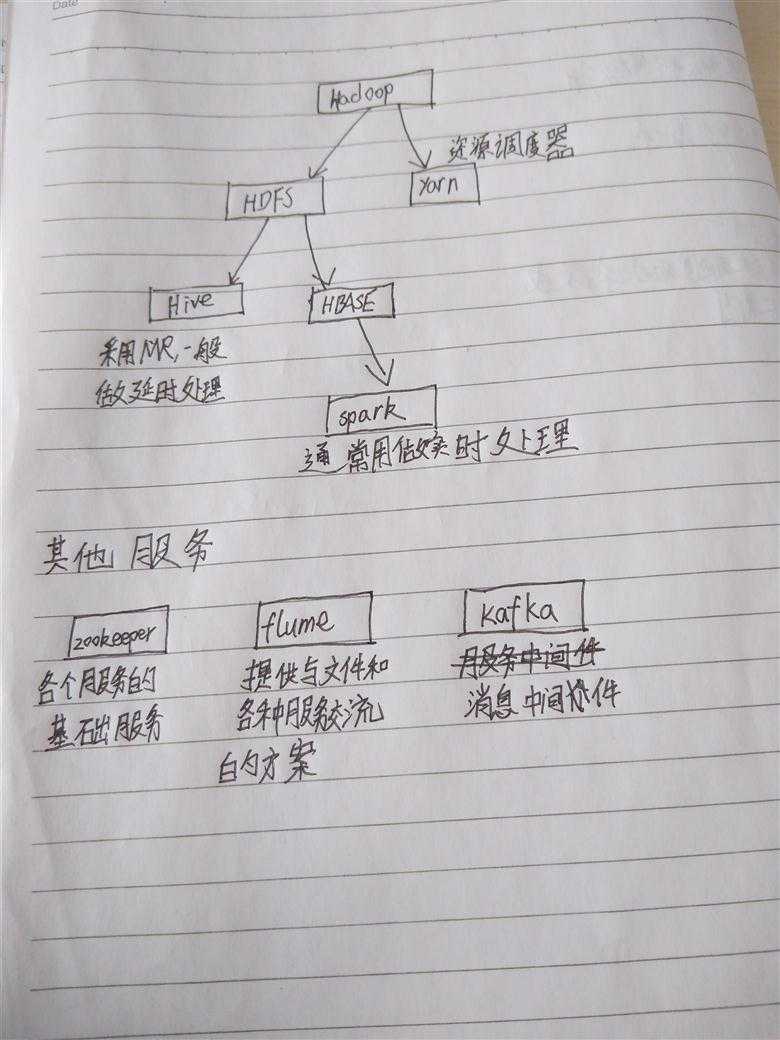 Date
Hadoop
资源调度器
HDFS
Yarn
Hive
HBASE
采用MR,一般
做延时处理
spark
通常用做实时处理
其他服务
zookeeper
flume
kafka
各个服务的
基础服务
提供与文件和
各种服务交流
的方案
服务中间件
消息中间件